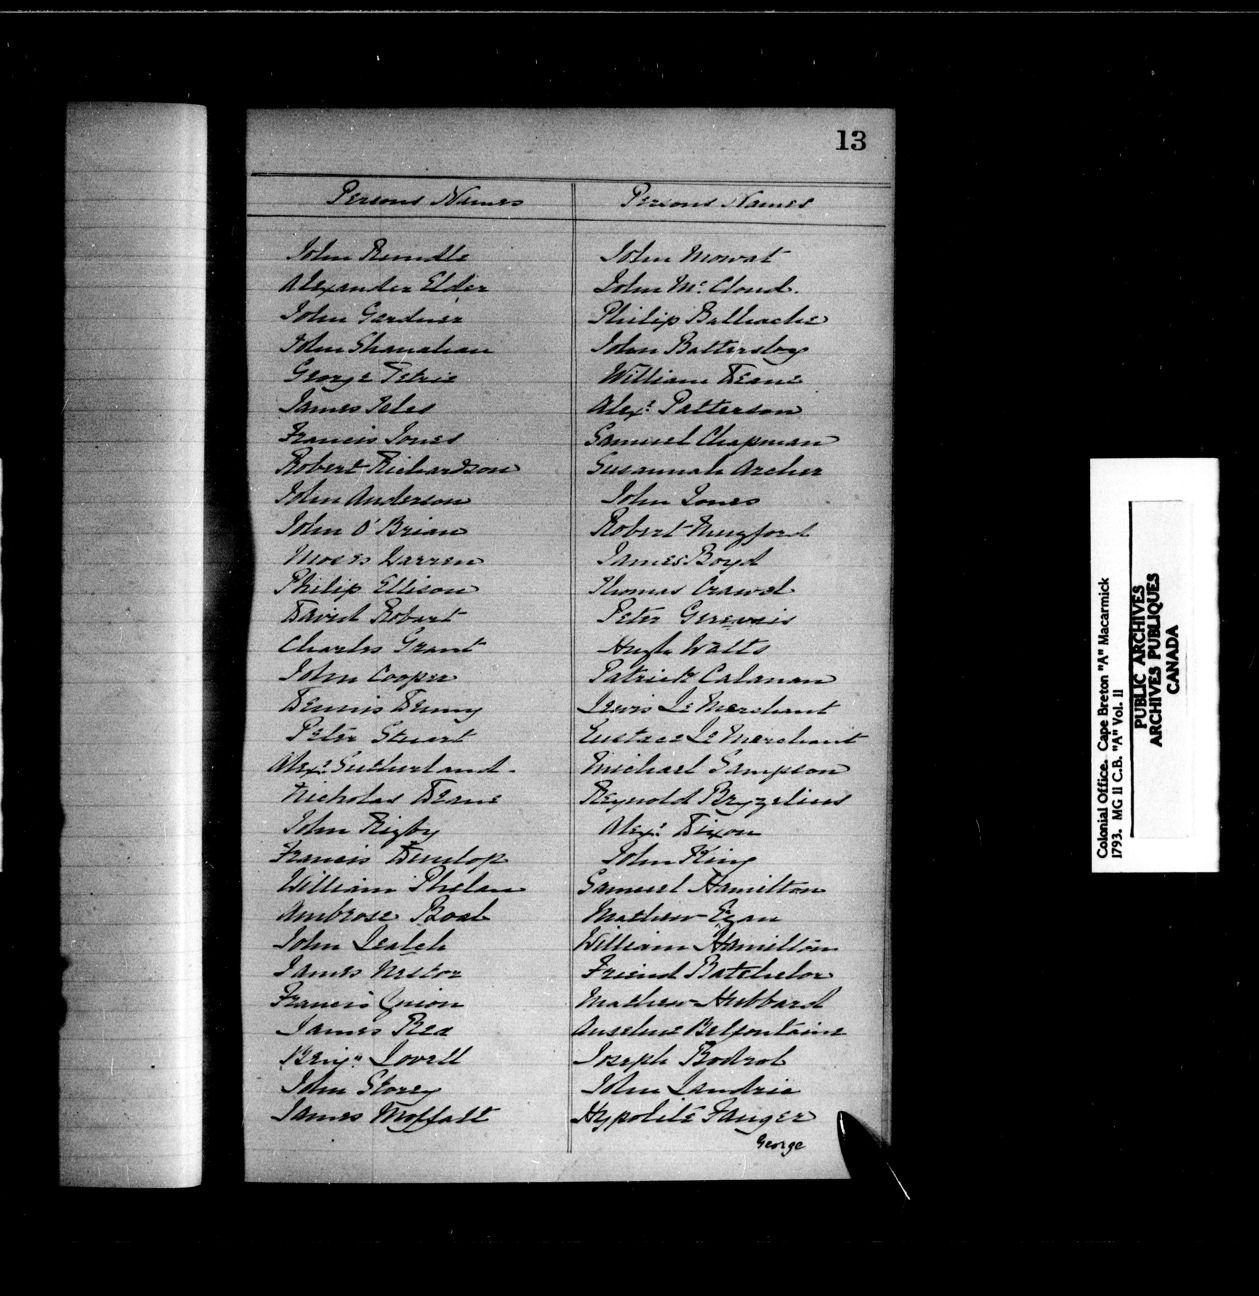 13
Persons Names
John Rendle
Alexander Elder
John Gardner
John Shanahan
George Petrie
James Isles
Francis Jones
Robert Richardson
John Anderson
John O'Brian
Moses Warren
Philip Ellison
David Robart
Charles Grant
John Cooper
Dennis Denny
Peter Stuart
Alexr. Sutherland.
Nicholas Deane
John Rigby
Francis Dunlop
William Phelan
Ambrose Boal
John Leatch
James Nestor
Francis
James Rea
Benjn. Lovell
John Storey
James Moffatt
Persons Names
John Mowat
John Mc. Cloud.
Philip Balliache
John Battersby
William Deane
Alexr. Patterson
Samuel Chapman
Susannah Archer
John Jones
Robert
James Boyd
Thomas Crawd
Peter Gerevais
Hugh Watts
Patrick Calanan
Lewis Le Merchant
Eustace Le Merchant
Michael Sampson
Reynold Bryzelius
Alexr. Dixon
John King
Samuel Hamilton
Mathew Egan
William Hamilton
Friend Batchelor
Mathew Hubbard
Anselme Belfontaine
Joseph Bodrot
John Landrie
Hypolite Fanger
George
Colonial Office. Cape Breton "A" Macarmick
1793. MG 11 C.B. "A" Vol. 11
PUBLIC ARCHIVES
ARCHIVES PUBLIQUES
CANADA